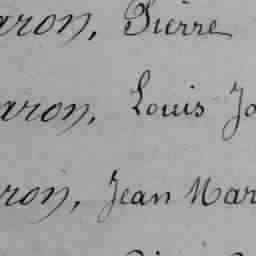 aron, Pierre
aron, Louis Jo
ron, Jean Mar